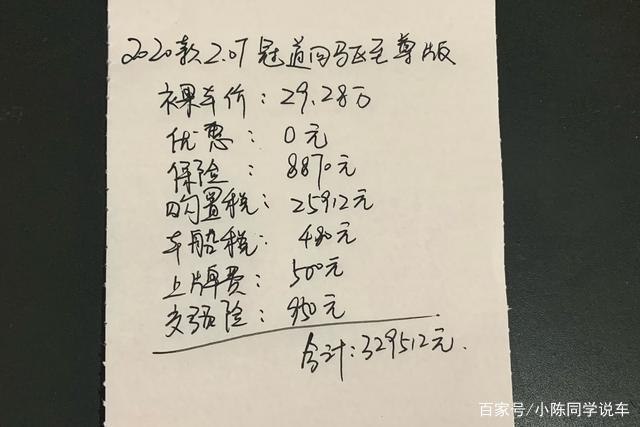 2020款2.0T冠道四驱至尊版
裸车价：29.28万
优惠：0元
保险：8870元
购置税：25912元
车船税：480元
上牌费：500元
交强险：950元
合计：329512元.
百家号/小陈同学说车